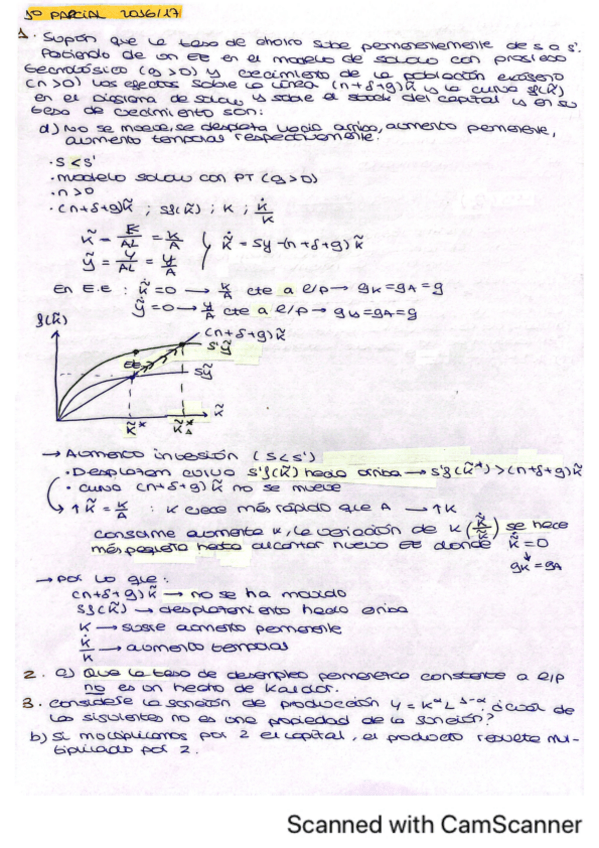 1º PARCIAL 2016/17
1. Supón que la tasa de ahorro sube permanentemente de s a s'.
Partiendo de un EE en el modelo de solow con progreso
tecnológico (g>0) y crecimiento de la población exógeno
(n>0) los efectos sobre la línea (n+δ+g)k̃ y la curva sf(k̃)
en el diagrama de solow y sobre el stock del capital y en su
tasa de crecimiento son:
a) No se mueve, se desplaza hacia arriba, aumento permanente,
aumento temporal respectivamente.
· s < s'
· modelo solow con PT (g>0)
· n>0
· (n+δ+g)k̃ ; sf(k̃) ; K ; K̇/K
k̃ = K/AL = k/A
k̃̇ = sy-(n+δ+g)k̃
ỹ = Y/AL = y/A
En E.E : k̃̇=0 → k/A cte a l/p → gk=gA=g
ỹ̇=0 → y/A cte a l/p → gy=gA=g
f(k̃)
(n+δ+g)k̃
s'ỹ
EE
sỹ
k̃
k̃*
k̃*
→ Aumento inversión (s<s')
· Desplazan curva s'f(k̃) hacia arriba → s'f(k̃*)>(n+δ+g)k̃
· curva (n+δ+g)k̃ no se mueve
↑k̃ = k/A : K crece más rápido que A → ↑K
conforme aumenta k, la variación de k (k̃̇/k̃) se hace
más pequeña hasta alcanzar nuevo EE donde k̃̇=0
gk=gA
→ Por lo que:
(n+δ+g)k̃ → no se ha movido
sf(k̃) → desplazamiento hacia arriba
K → sufre aumento permanente
K̇/K → aumento temporal
2. c) Que la tasa de desempleo permanezca constante a l/p
no es un hecho de Kaldor.
3. Considérese la función de producción Y = K^α L^1-α ¿cuál de
las siguientes no es una propiedad de la función?
b) Si multiplicamos por 2 el capital, el producto resulta mul-
tiplicado por 2.
Scanned with CamScanner